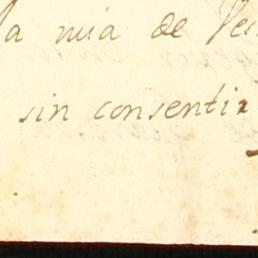 la mia de Ve
sin consentir